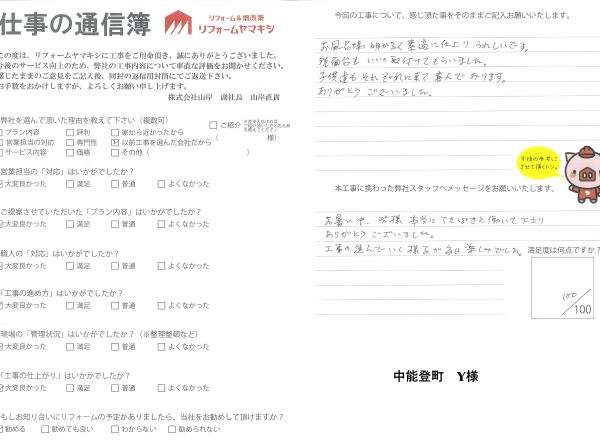 仕事の通信簿
リフォーム&増改築
リフォームヤマキシ
この度は、リフォームヤマキシに工事をご用命頂き、誠にありがとうございました。
今後のサービス向上のため、弊社の工事内容について率直な評価をお聞かせください。
感じたままのご意見をご記入後、同封の返信用封筒にてご返送下さい。
お手数をおかけしますが、よろしくお願い申し上げます。
株式会社山岸 副社長 山岸直貴
弊社を選んで頂いた理由を教えて下さい（複数可）
プラン内容 評判 家から近かったから
営業担当の対応 専門性 以前工事を頼んだ会社だから
サービス内容 価格 その他（ ）
ご紹介
（ 様）
営業担当の「対応」はいかがでしたか？
大変良かった 満足 普通 よくなかった
ご提案させていただいた「プラン内容」はいかがでしたか？
大変良かった 満足 普通 よくなかった
職人の「対応」はいかがでしたか？
大変良かった 満足 普通 よくなかった
「工事の進め方」はいかがでしたか？
大変良かった 満足 普通 よくなかった
現場の「管理状況」はいかがでしたか？（※整理整頓など）
大変良かった 満足 普通 よくなかった
「工事の仕上がり」はいかがでしたか？
大変良かった 満足 普通 よくなかった
もしお知り合いにリフォームの予定がありましたら、当社をお勧めして頂けますか？
勧める 勧めても良い わからない 勧められない
今回の工事について、感じ頂た事をそのままご記入お願いいたします。
お風呂場 明かるく素適に仕上り うれしいです。
洗面台も いい 取付けてもらいました。
子供達も それぞれに来て 喜んで おります。
ありがとう ございました。
今後の参考に
させて頂くトン。
本工事に携わった弊社スタッフへメッセージをお願いいたします。
お暑い中、皆様 本当に てきぱきと働いて下さり
ありがとう ございました。
工事の進んでいく様子が毎日 楽しみでした。
満足度は何点ですか？
100/100
中能登町 Y様